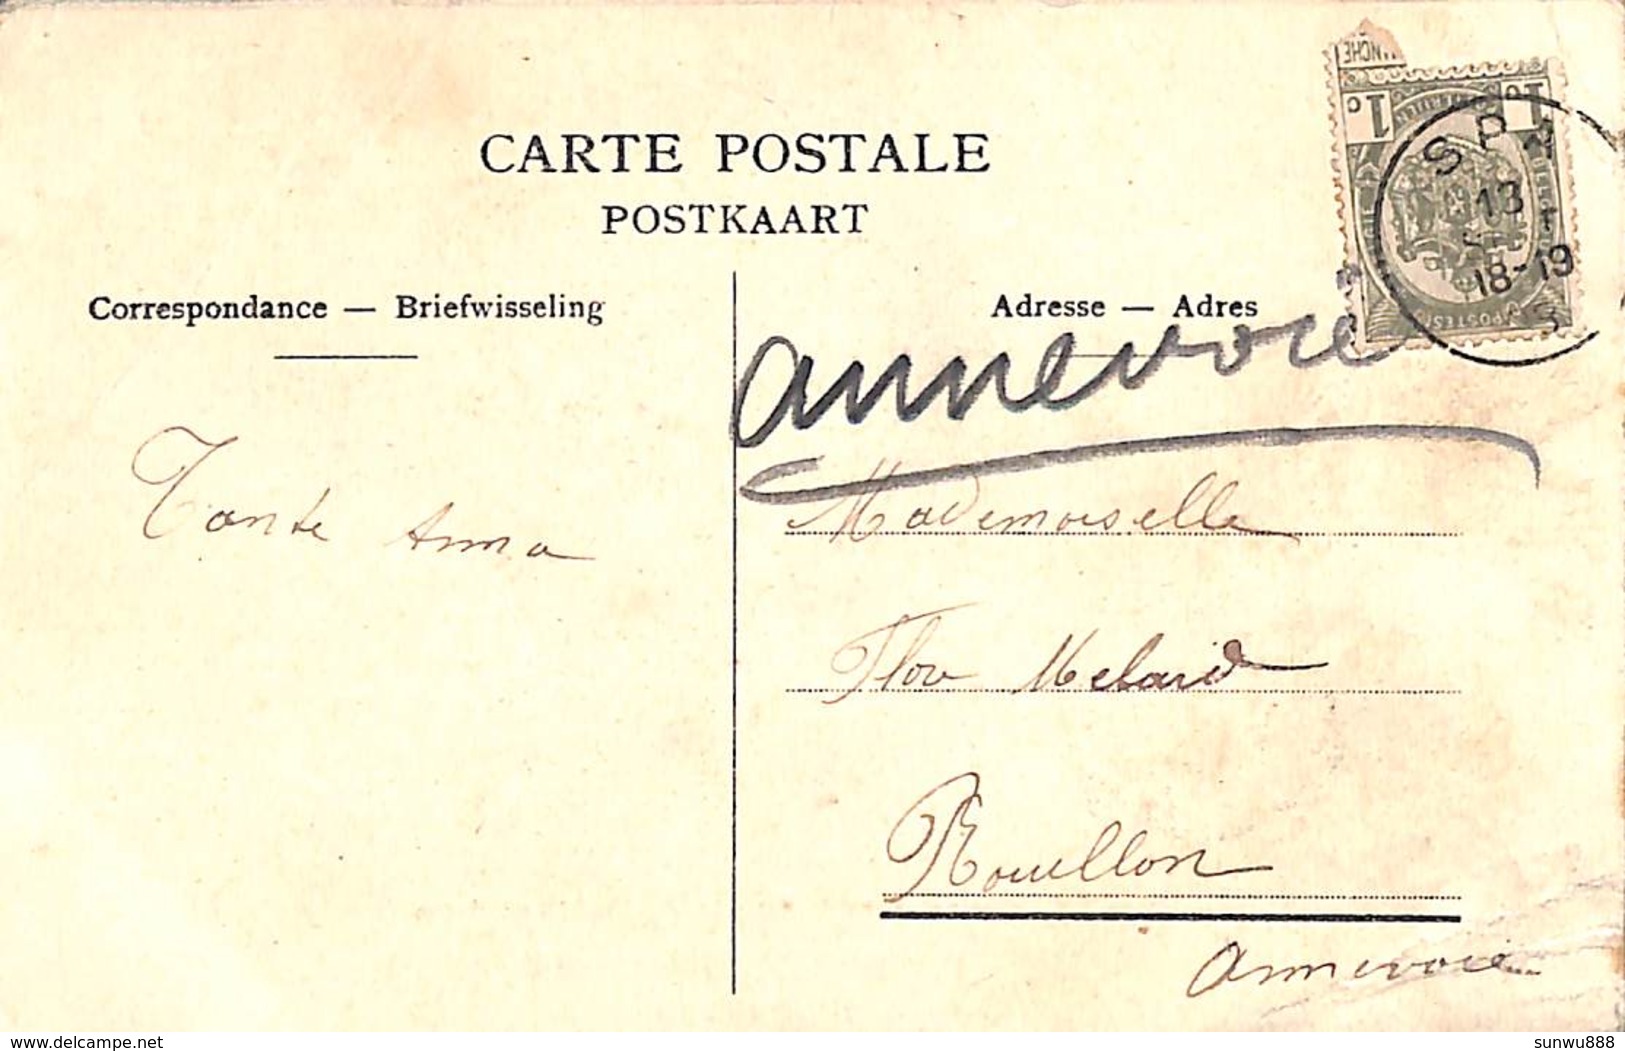 CARTE POSTALE
POSTKAART
Correspondance — Briefwisseling
Adresse — Adres
1 c
1 c
POSTES
SPA
13
18-19
Annevoie
Tante Anna
Mademoiselle
Flor
Rouillon
Annevoie
delcampe.net
sunwu888